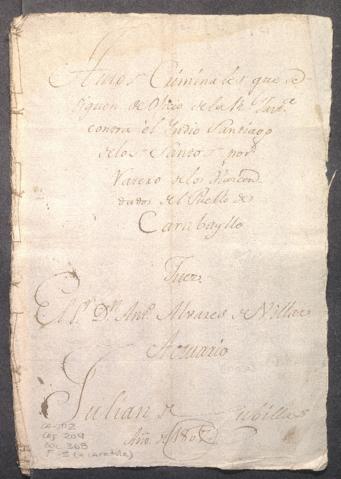 Autos Criminales que se
siguen de Oficio de la Rl Justª
contra el Indio Santiago
de los Santos por
Ratero de los
del Pueblo de
Carabayllo
Juez
El Dn Antº Alvares de Villar
Actuario
Julian de Cubillas
Año de
CAJ 209
DOC 365